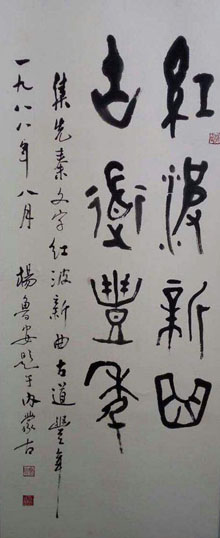 紅波新曲
古道豐年
集先秦文字紅波新曲古道豐年
一九八八年八月 楊魯安題于內蒙古